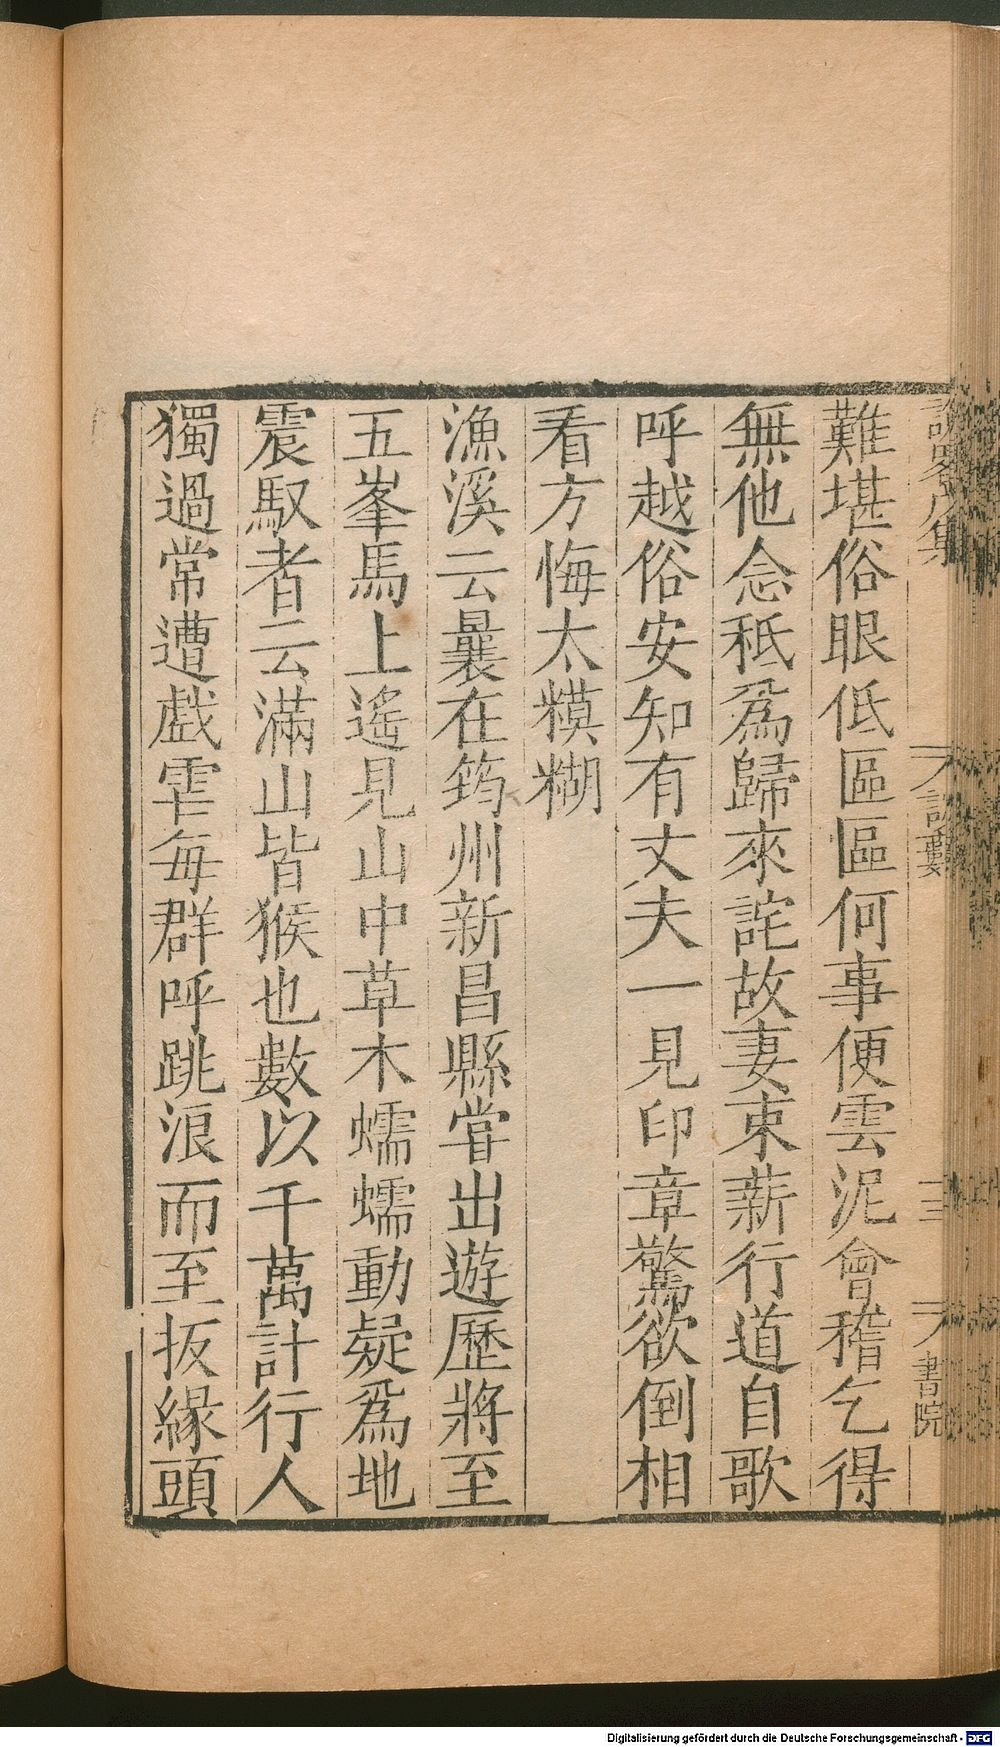 難堪俗眼低區區何事便雲泥會稽乞得
無他念秪爲歸來詫故妻束薪行道自歌
呼越俗安知有丈夫一見印章驚欲倒相
看方悔太糢糊
漁溪云曩在筠州新昌縣甞出遊歷將至
五峯馬上遙見山中草木蠕蠕動疑爲地
震馭者云滿山皆猴也數以千萬計行人
獨過常遭戲虐每群呼跳浪而至扳緣頭
書院
Digitalisierung gefördert durch die Deutsche Forschungsgemeinschaft - DFG